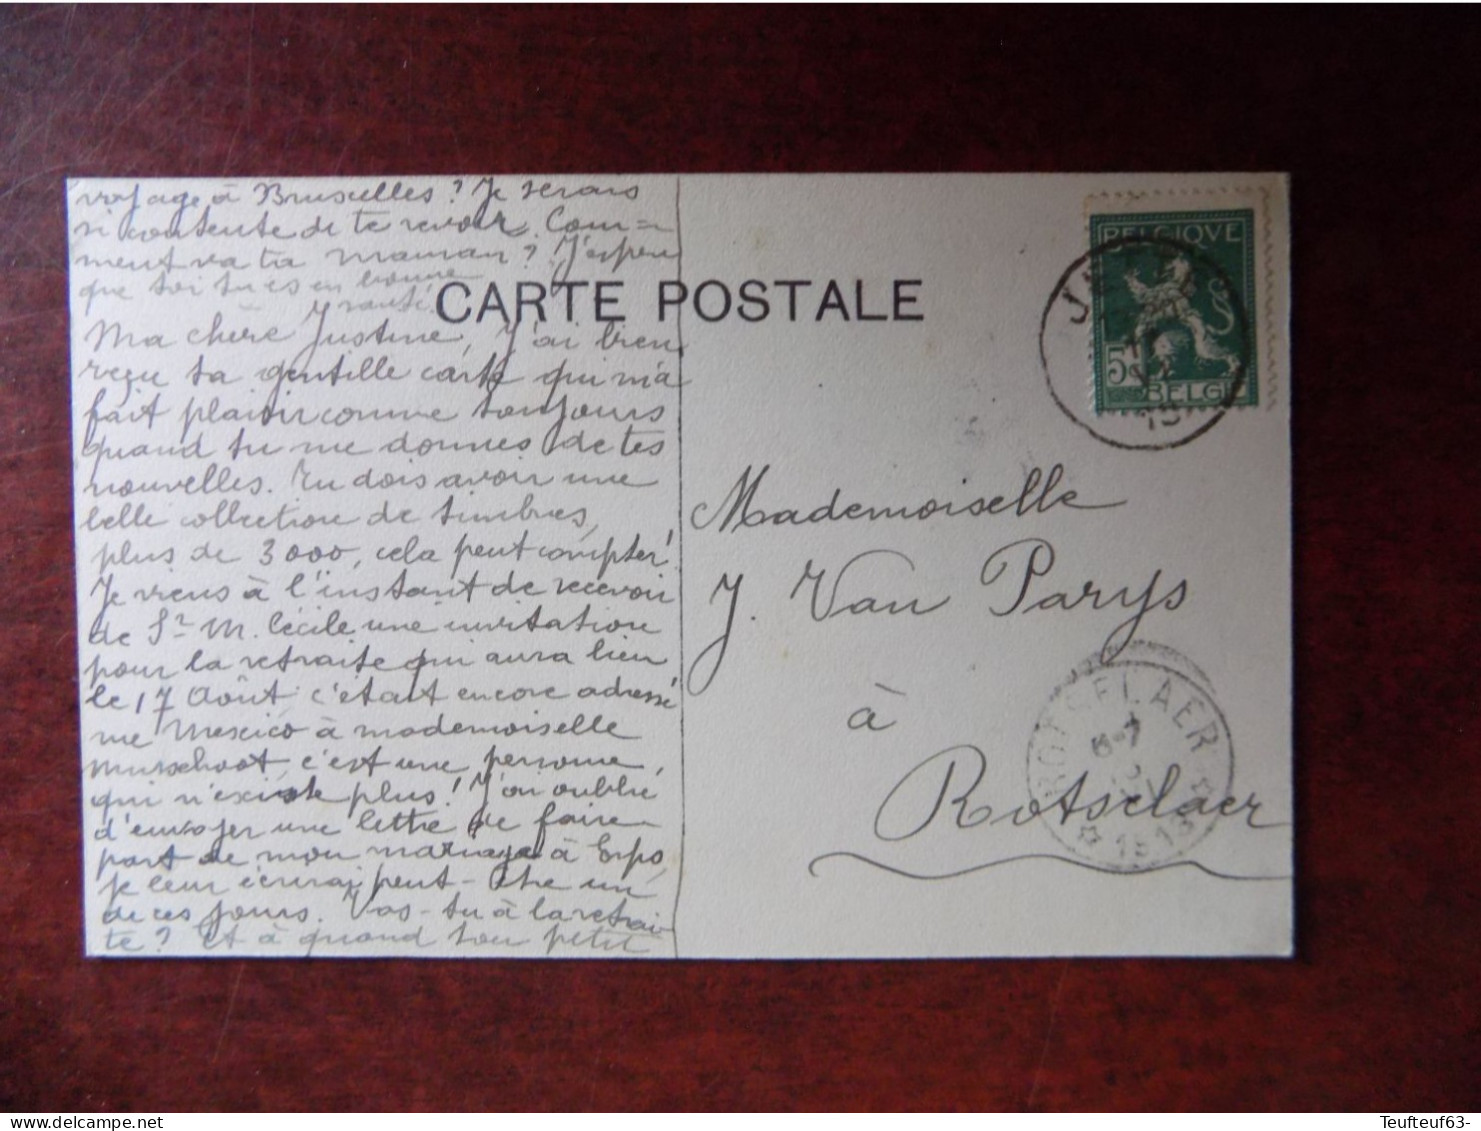 voyage à Bruxelles? Je serais
si contente de te revoir. Com=
ment va ta maman? J'espère
que toi tu es en bonne
santé.
CARTE POSTALE
Ma chère Justine, J'ai bien
reçu ta gentille carte qui m'a
fait plaisir comme toujours
quand tu me donnes de tes
nouvelles. Tu dois avoir une
belle collection de timbres,
plus de 3000, cela peut compter!
Je viens à l'instant de recevoir
de Sr M. Cécile une invitation
pour la retraite qui aura lieu
le 17 Août c'était encore adressé
rue Mexico à mademoiselle
Musschoot, c'est une personne,
qui n'existe plus! J'ai oublié
d'envoyer une lettre de faire
part de mon mariage à Erps,
je leur écrirai peut-être un
de ces jours. Vas-tu à la retrai
te? Et à quand ton petit
BELGIQUE
5
BELGIË
JETTE
13
Mademoiselle
J. Van Parys
à
Rotselaer
ROTSELAER
6-7
1913
Teufteuf63-